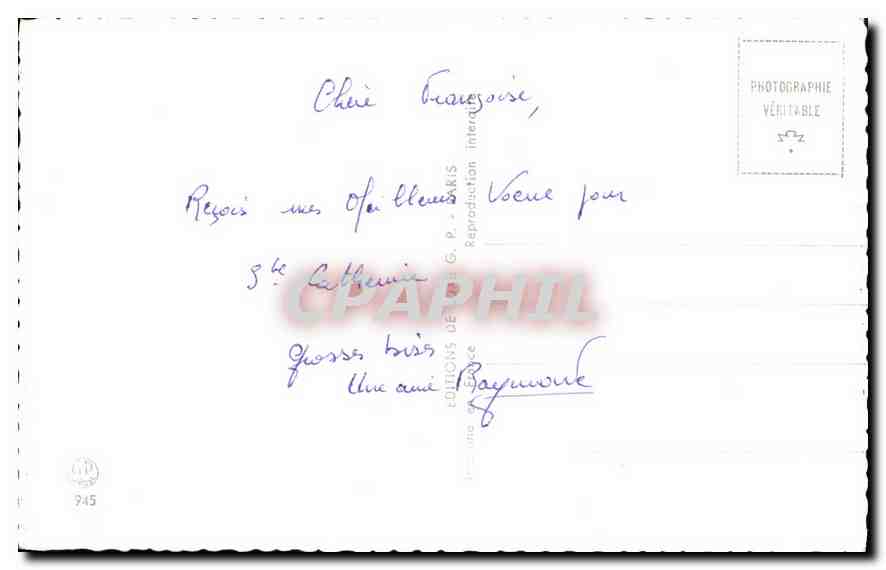 Chère Françoise,
PHOTOGRAPHIE
VÉRITABLE
Reçois mes Meilleurs Voeux pour
Ste Catherine
Grosses bises
Une amie Raymonde
EDITIONS DE G. P. - PARIS
en France Reproduction interdite
CPAPHIL
945